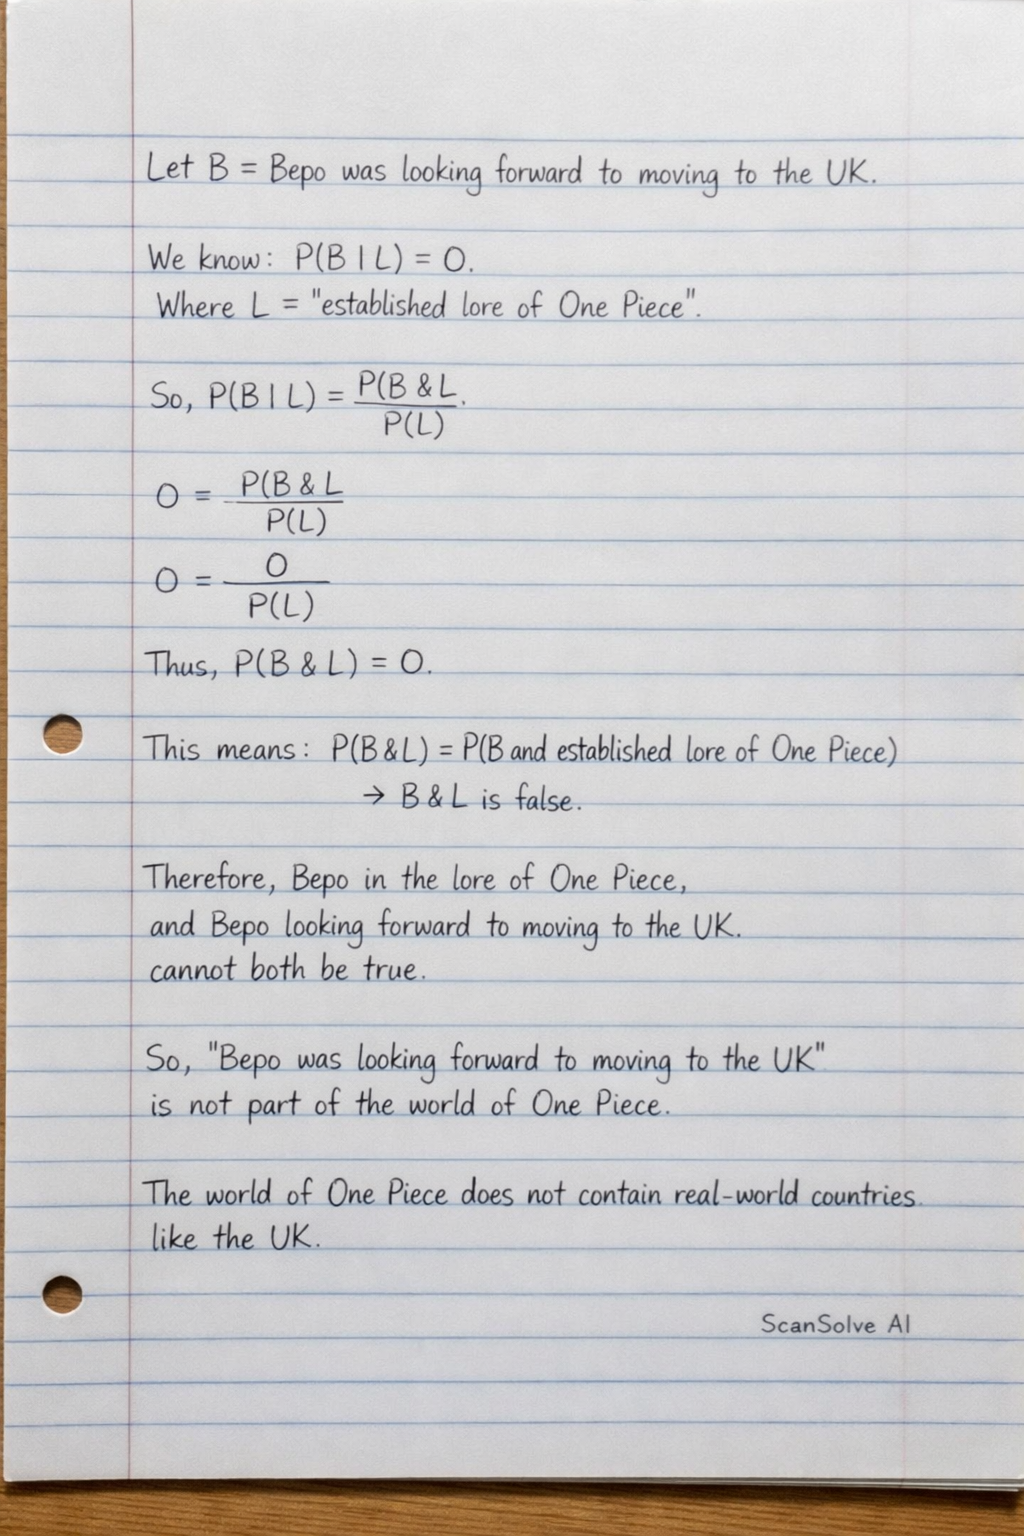 Let B = Bepo was looking forward to moving to the UK.
We know: P(B | L) = 0.
Where L = "established lore of One Piece".
So, P(B | L) = P(B & L.
P(L)
0 = P(B & L
P(L)
0 = 0
P(L)
Thus, P(B & L) = 0.
This means: P(B & L) = P(B and established lore of One Piece)
→ B & L is false.
Therefore, Bepo in the lore of One Piece,
and Bepo looking forward to moving to the UK.
cannot both be true.
So, "Bepo was looking forward to moving to the UK"
is not part of the world of One Piece.
The world of One Piece does not contain real-world countries.
like the UK.
ScanSolve AI